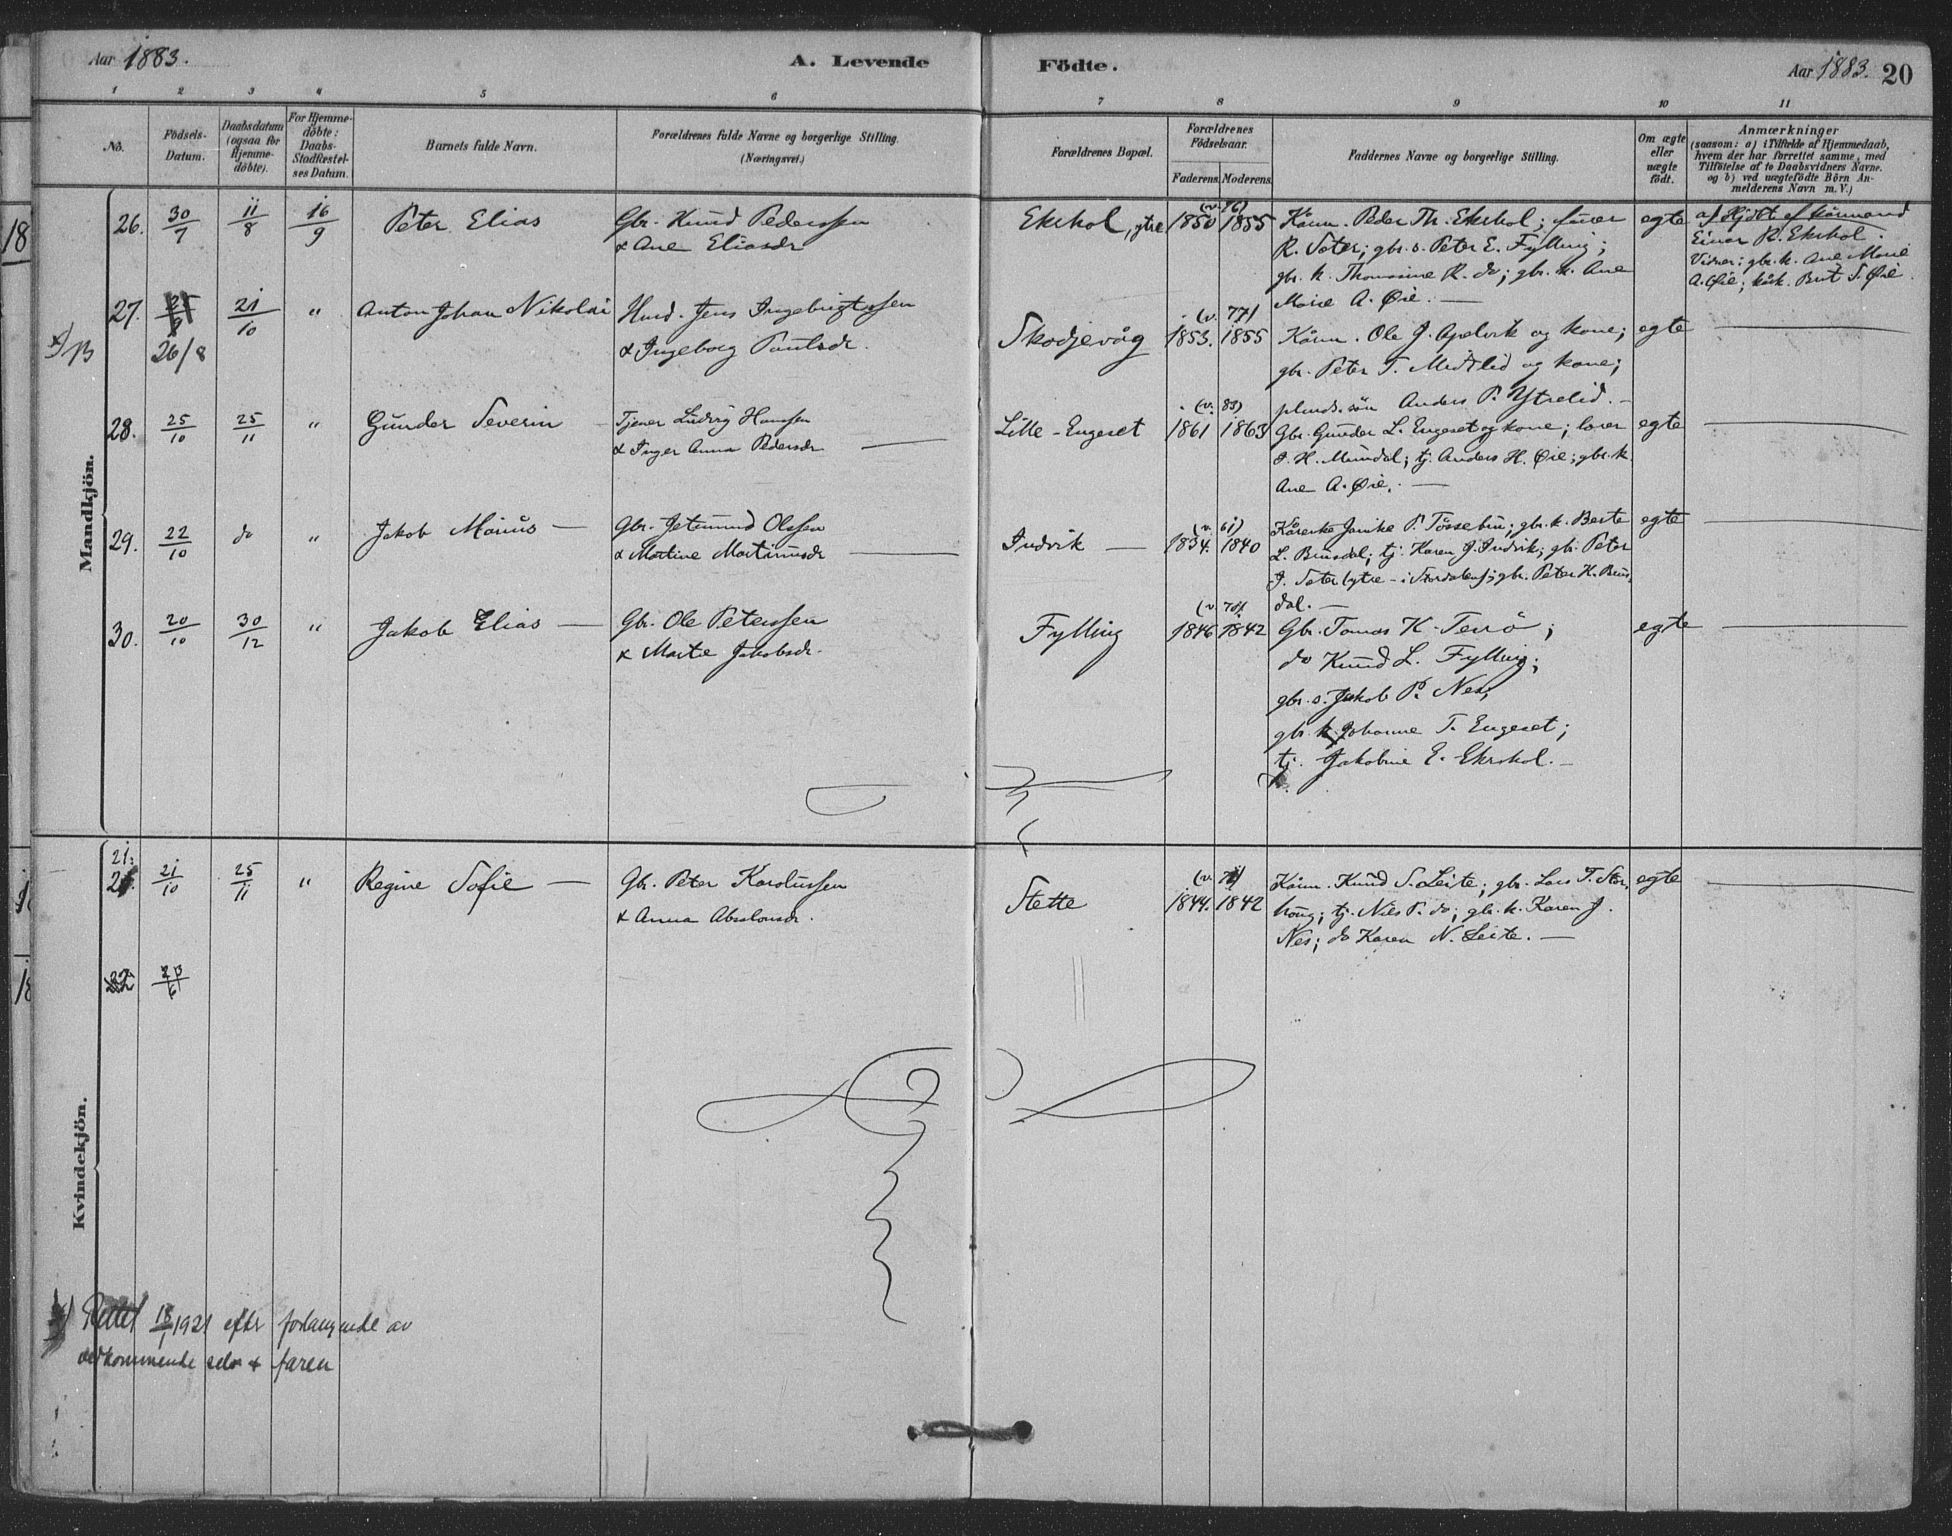 Aar 1883.
A. Levende Födte.
Aar 1883. 20
1 2 3 4 5 6 7 8 9 10 11
No.
Födsels-Datum.
Daabsdatum (ogsaa for Hjemme-döbte).
For Hjemme-döbte: Daabs-Stadfæstel-ses Datum.
Barnets fulde Navn.
Forældrenes fulde Navne og borgerlige Stilling. (Næringsvei.)
Forældrenes Bopæl.
Forældrenes Födselsaar.
Faderens. Moderens.
Faddernes Navne og borgerlige Stilling.
Om ægte eller uægte födt.
Anmærkninger (saasom: a) i Tilfælde af Hjemmedaab, hvem der har forrettet samme, med Tilföielse af to Daabsvidners Navne. og b) ved uægtefödte Börn An-melderens Navn m. V.)
Mandkjön.
26. 30/7 11/8 16/9 Peter Elias
Gbr. Knud Pederssen
& Ane Eliasdr
Ekrhol, ytre 1850 1855
Kånm. Peder Th. Ekrhol;
R. Sæter; gbr. s. Peter E. Fylling;
gbr. k. Thomasine R. do; gbr. k. Ane
Marie A. Øie. —
egte
Einar R. Ekrhol.
Vidner: gbr. k. Ane Marie
A. Øie; Brit S. Øie.
27. 21/10 " Anton Johan Nikolai
26/8
Jens Ingebrigtssen
& Ingeborg Paulsdr.
Skodjevåg (v. 77) 1853. 1855
Kånm. Ole J. Apelvik og kone;
gbr. Peter T. Medtlid og kone;
Anders P. Ytrelid. —
egte
28. 25/10 25/11 " Gunder Severin
Tjener Ludvig Hanssen
& Inger Anna Pedersdr
Lille-Engeset (v. 83) 1861 1863
Gbr. Gunder L. Engeset og kone; lærer
H. Mundal; tj. Anders H. Øie; gbr. k.
Ane A. Øie. —
egte
29. 22/10 do " Jakob Marius —
Gbr. Jetmund Olssen
& Martine Martinusdr
Indvik — (v. 61) 1834. 1840
L. Brusdal; tj. Karen J. Indvik; gbr. Peter
J. Sæter (ytre - i Stordalen); gbr. Peter K. Brus-
dal. —
egte
30. 20/10 30/12 " Jakob Elias —
Gbr. Ole Peterssen
& Marte Jakobsdr.
Fylling 1846 1842
Gbr. Tomas K. Tenø;
do Knud L. Fylling;
gbr. s. Jakob P. Nes;
gbr. k. Johanne T. Engeset;
tj. Jakobine E. Ekrhol. —
egte
Kvindekjön.
21. 21/10 25/11 " Regine Sofie —
Gbr. Peter Karolussen
& Anna Absalonsdr.
Stette 1844. 1842
Kånm. Knud S. Leite; gbr. Lars T. Stor-
houg; tj. Nils P. do; gbr. k. Karen J.
Nes; do Karen N. Leite. —
egte
22
Rettet 18/1 1921 efter forlangende av
vedkommende selv & faren